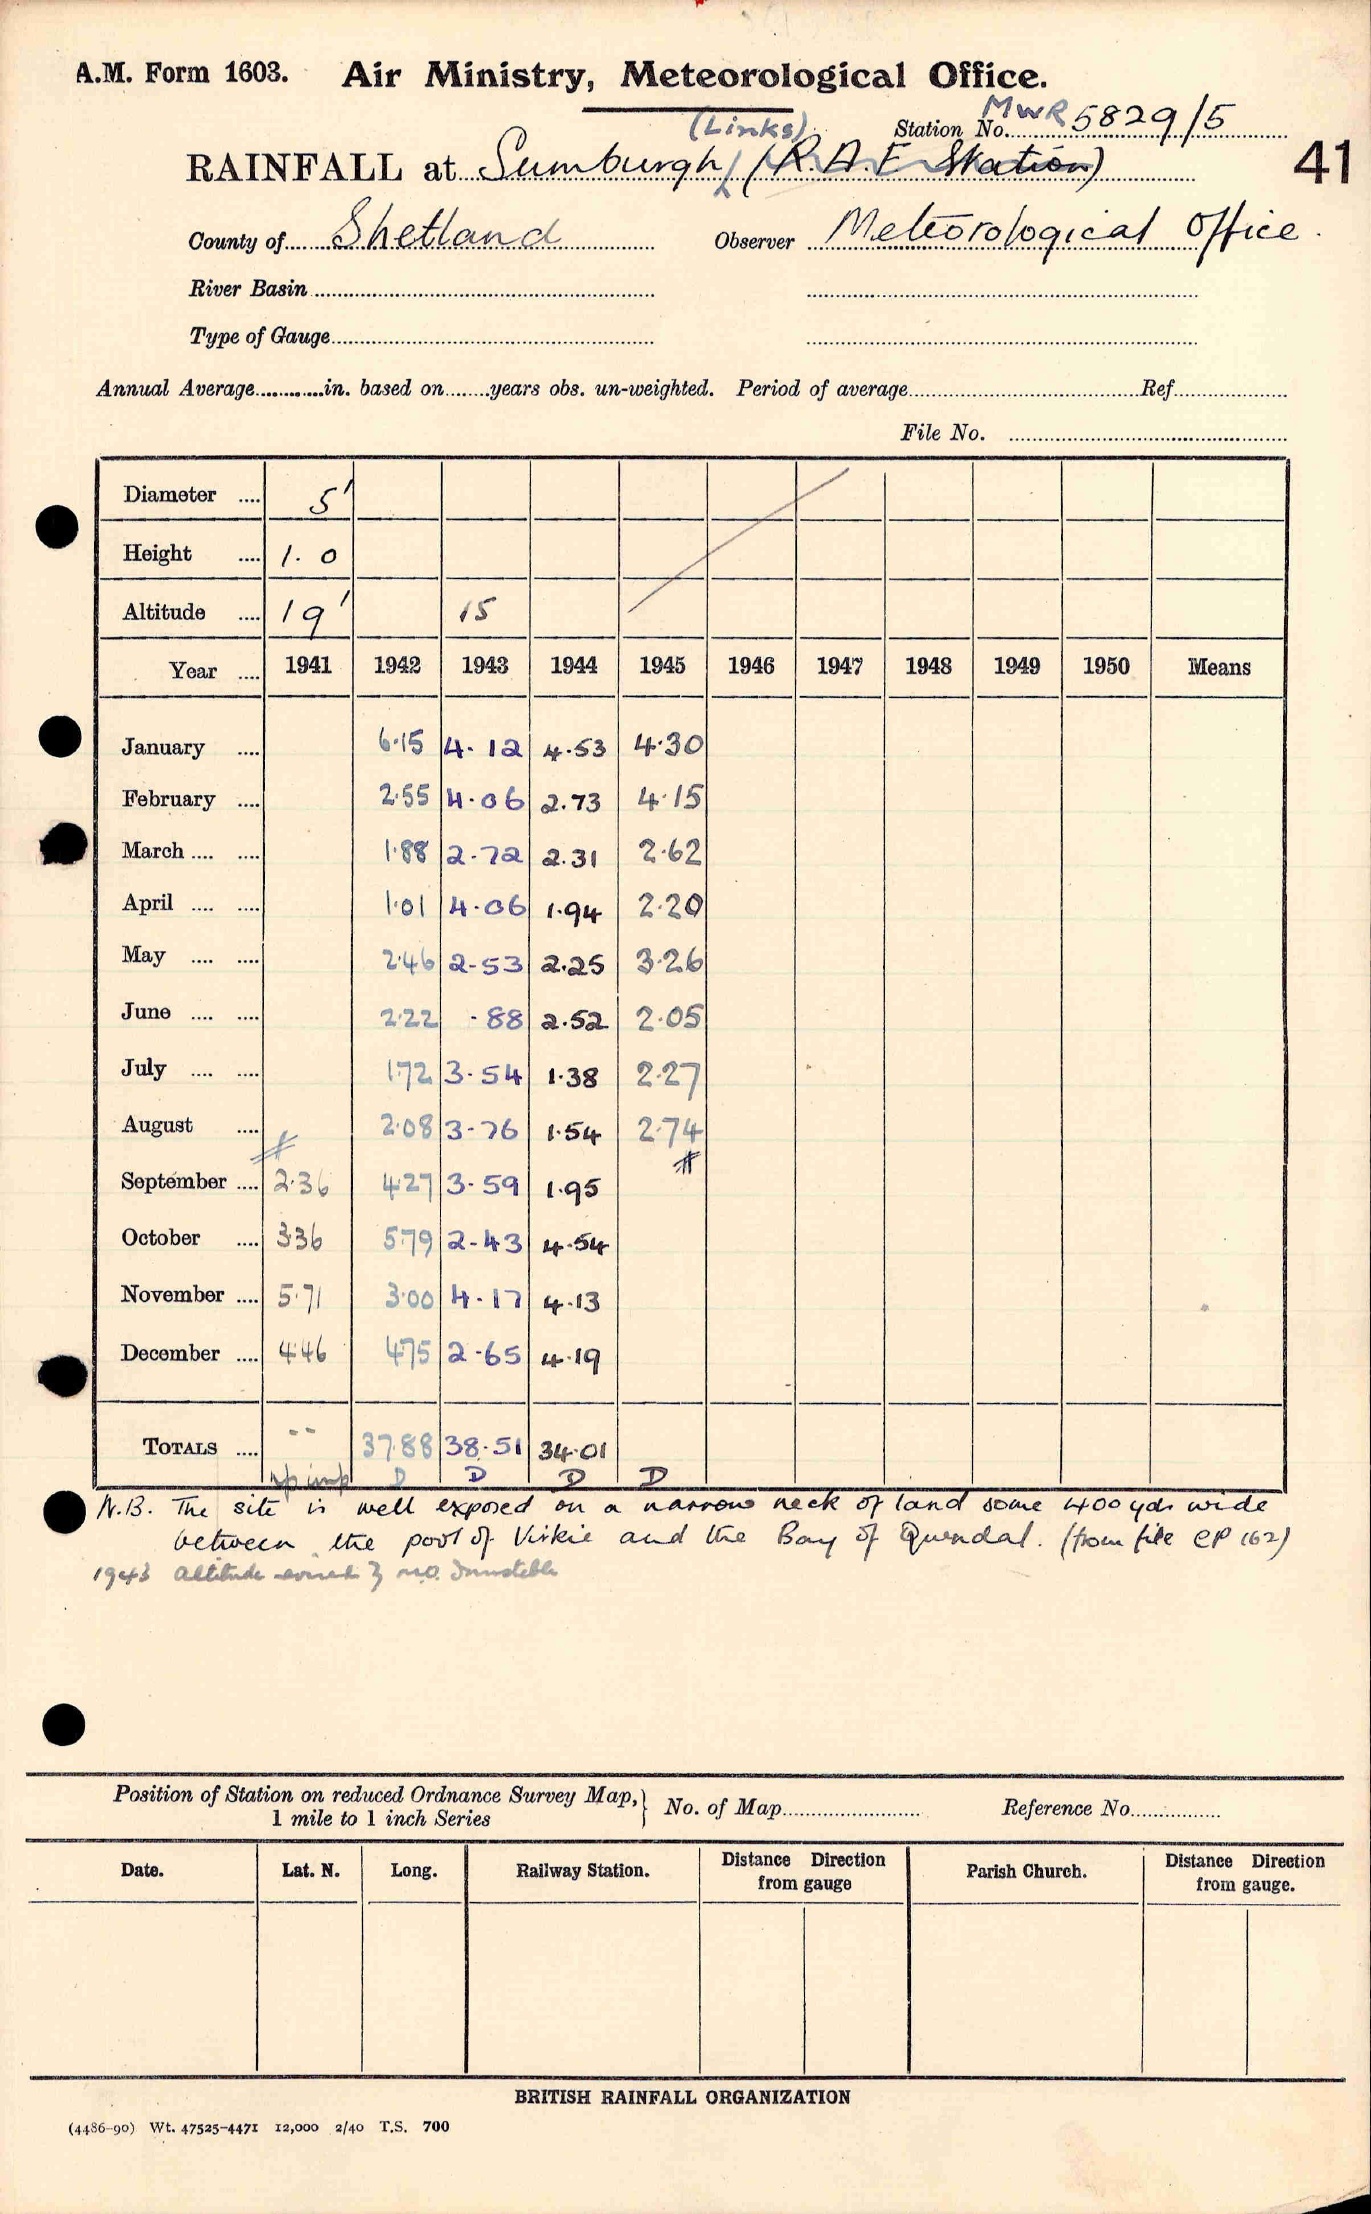 A.M. Form 1603. Air Ministry, Meteorological Office.
(Links) Station No. MWR 5829/5
41
RAINFALL at Sumburgh (R.A.F Station)
County of Shetland Observer Meteorological Office.
River Basin
Type of Gauge
Annual Average in. based on years obs. un-weighted. Period of average Ref
File No.
Diameter .... 5'
Height .... 1.0
Altitude .... 19' 15
Year .... 1941 1942 1943 1944 1945 1946 1947 1948 1949 1950 Means
January .... 6.15 4.12 4.53 4.30
February .... 2.55 4.06 2.73 4.15
March .... .... 1.88 2.72 2.31 2.62
April .... .... 1.01 4.06 1.94 2.20
May .... .... 2.46 2.53 2.25 3.26
June .... .... 2.22 .88 2.52 2.05
July .... .... 1.72 3.54 1.38 2.27
August .... 2.08 3.76 1.54 2.74
September .... 2.36 4.27 3.59 1.95
October .... 3.36 5.79 2.43 4.54
November .... 5.71 3.00 4.17 4.13
December .... 4.46 4.75 2.65 4.19
TOTALS .... -- 37.88 38.51 34.01
D D D D
N.B. The site is well exposed on a narrow neck of land some 400 yds wide
between the pool of Virkie and the Bay of Quendal. (from file CP 162)
1943 altitude M.O. Dunstable
Position of Station on reduced Ordnance Survey Map,
1 mile to 1 inch Series
No. of Map Reference No.
Date. Lat. N. Long. Railway Station. Distance from gauge Direction Parish Church. Distance from gauge. Direction
BRITISH RAINFALL ORGANIZATION
(4486-90) Wt. 47525-4471 12,000 2/40 T.S. 700